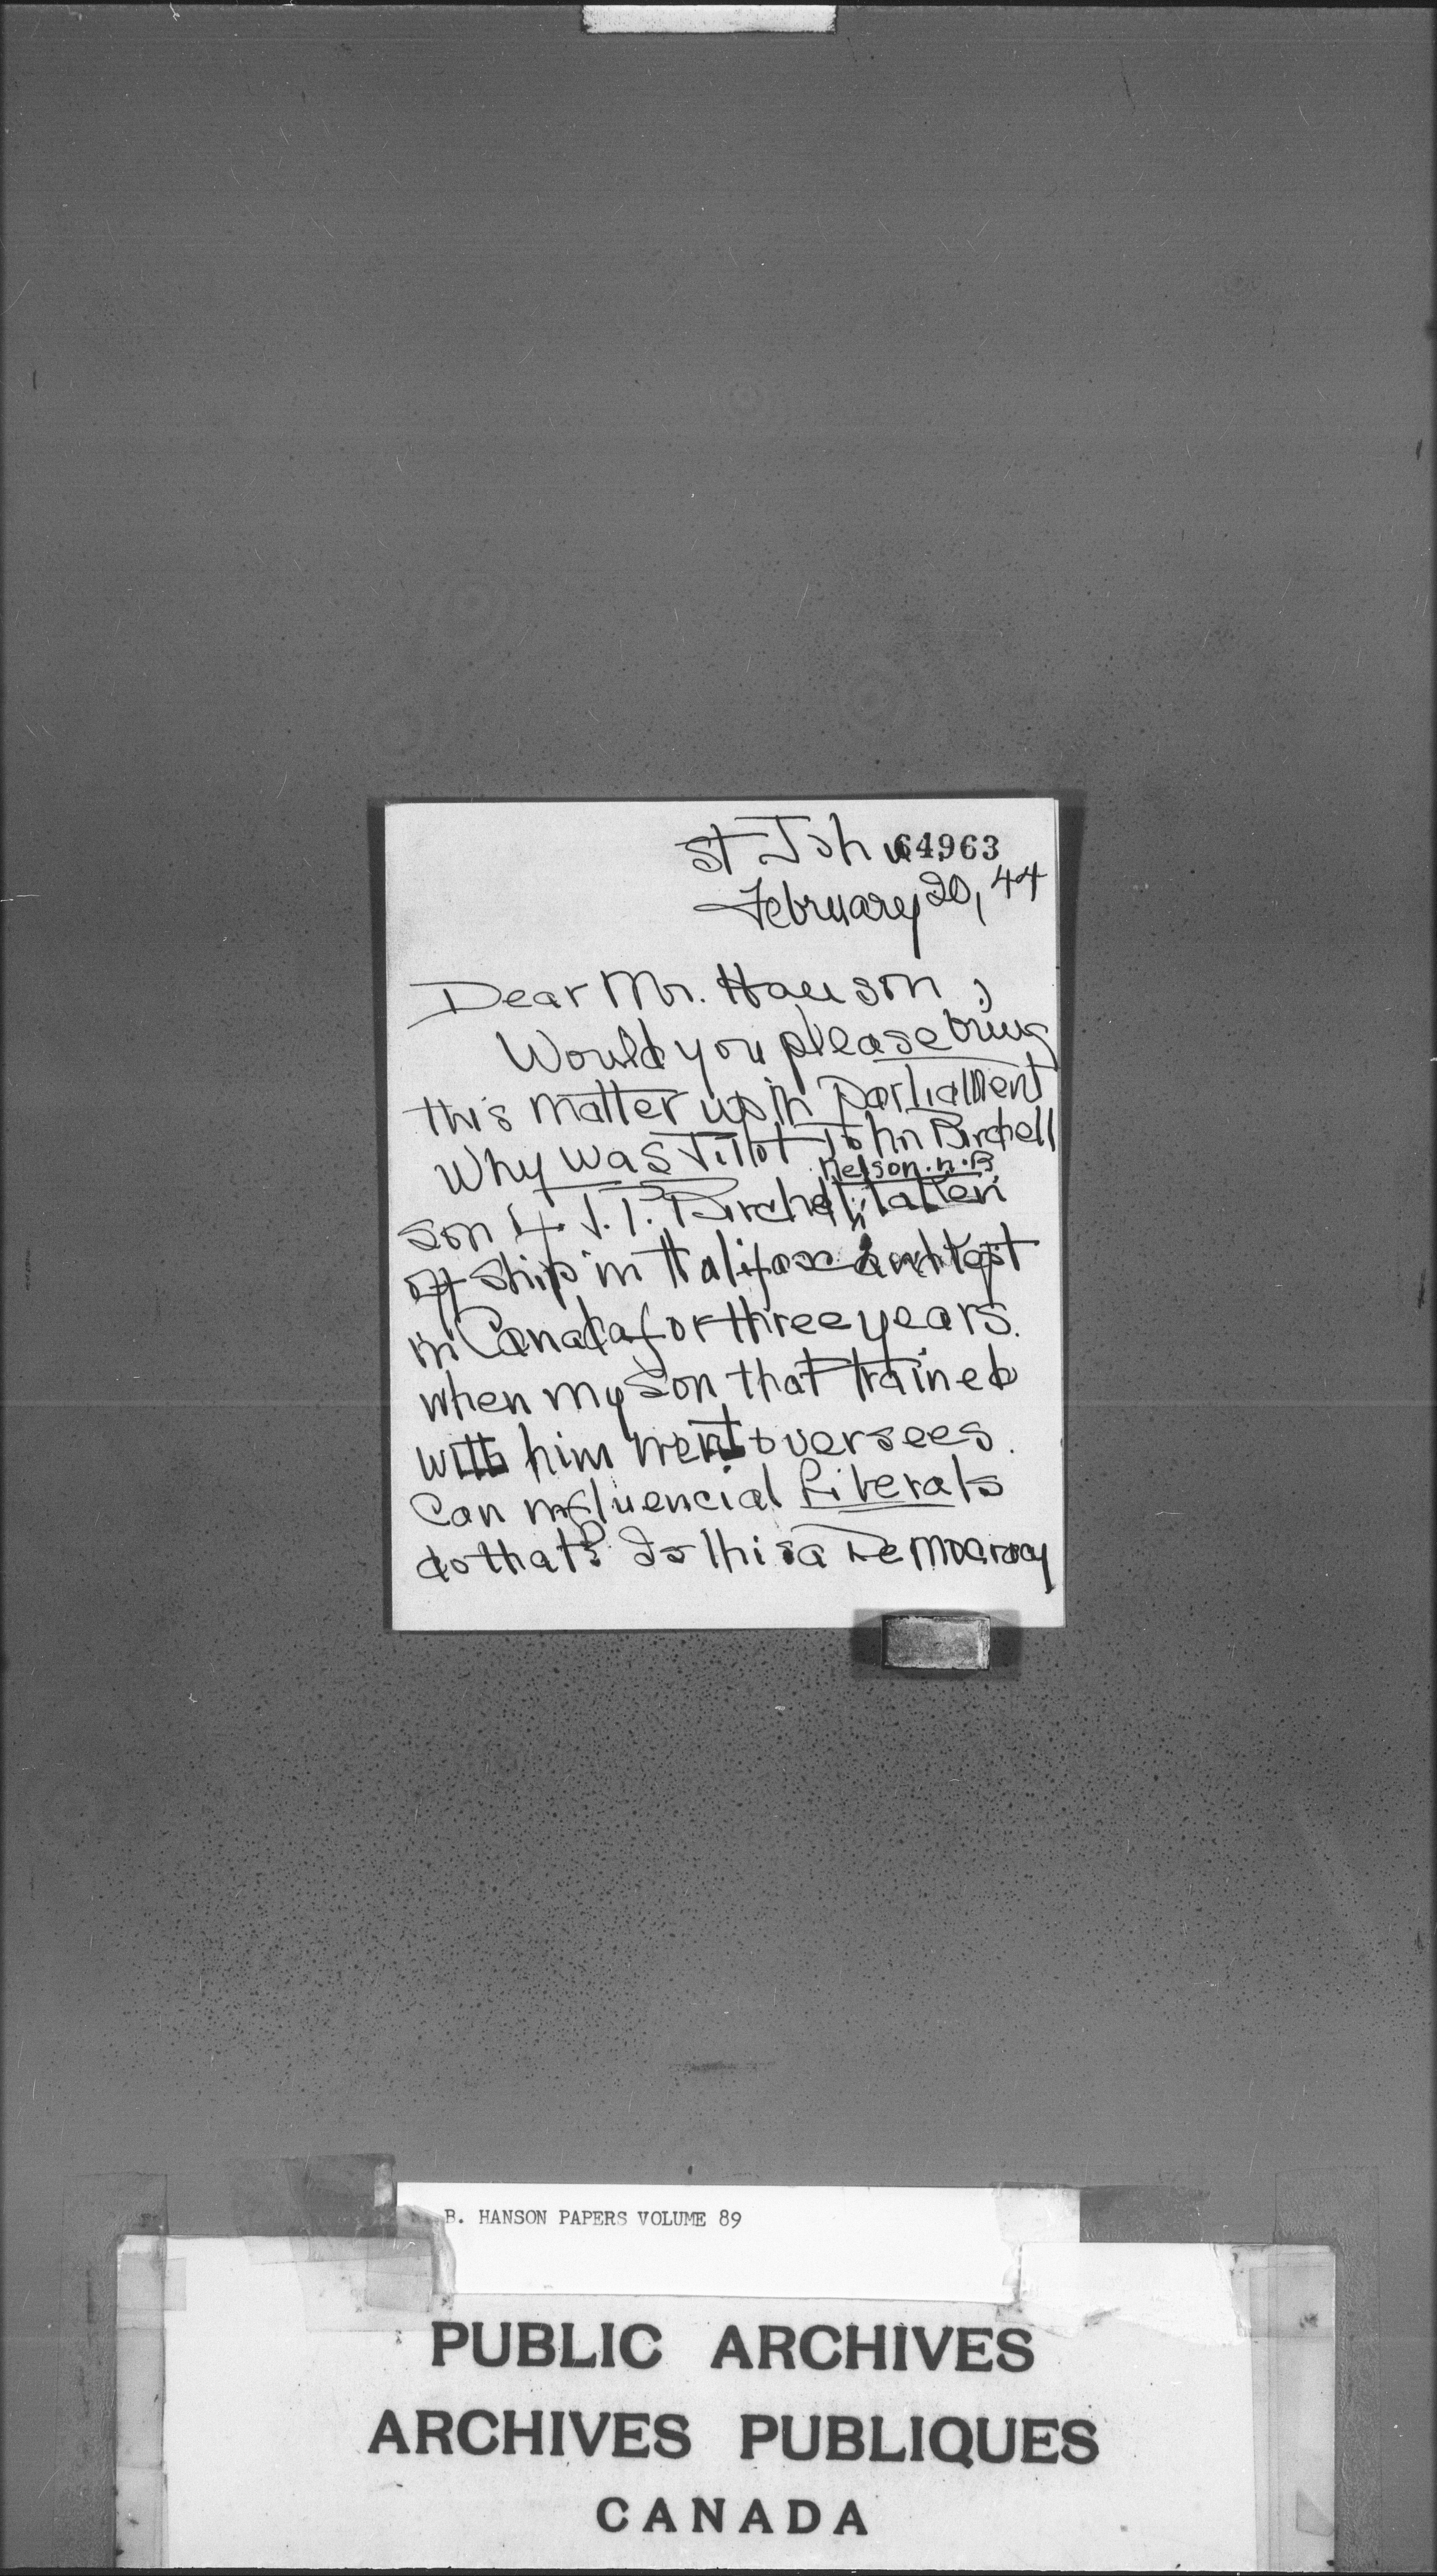 St John 64963
February 20, 44
Dear Mr. Hanson,
Would you please bring
this matter up in Parliament
Why was John Birchell
Nelson. N.B.
son of J.P. Birchell, taken
off ship in Halifax and kept
in Canada for three years.
when my son that trained
with him went oversees.
Can influencial Liberals
do that? Is this a Democracy
B. HANSON PAPERS VOLUME 89
PUBLIC ARCHIVES
ARCHIVES PUBLIQUES
CANADA